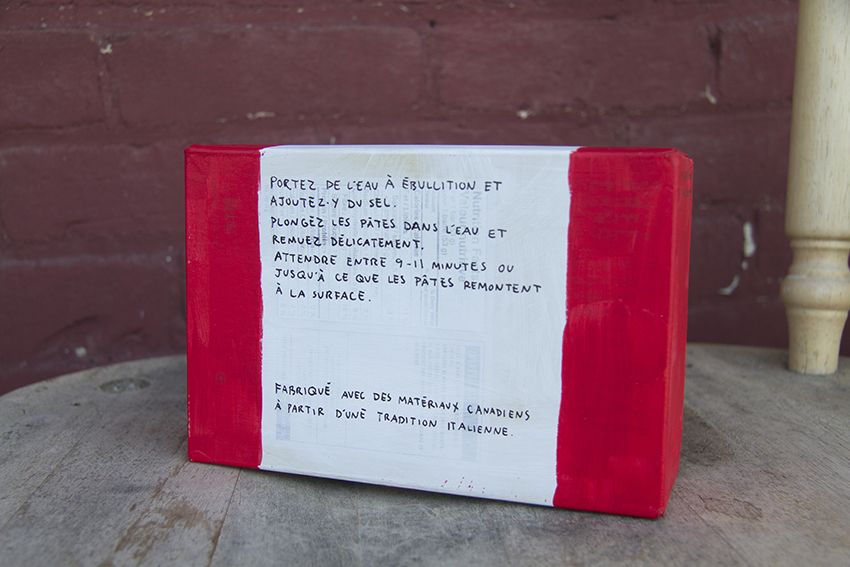 PORTEZ DE L'EAU À ÉBULLITION ET
AJOUTEZ-Y DU SEL.
PLONGEZ LES PÂTES DANS L'EAU ET
REMUEZ DÉLICATEMENT.
ATTENDRE ENTRE 9-11 MINUTES OU
JUSQU'À CE QUE LES PÂTES REMONTENT
À LA SURFACE.
FABRIQUÉ AVEC DES MATÉRIAUX CANADIENS
À PARTIR D'UNE TRADITION ITALIENNE.